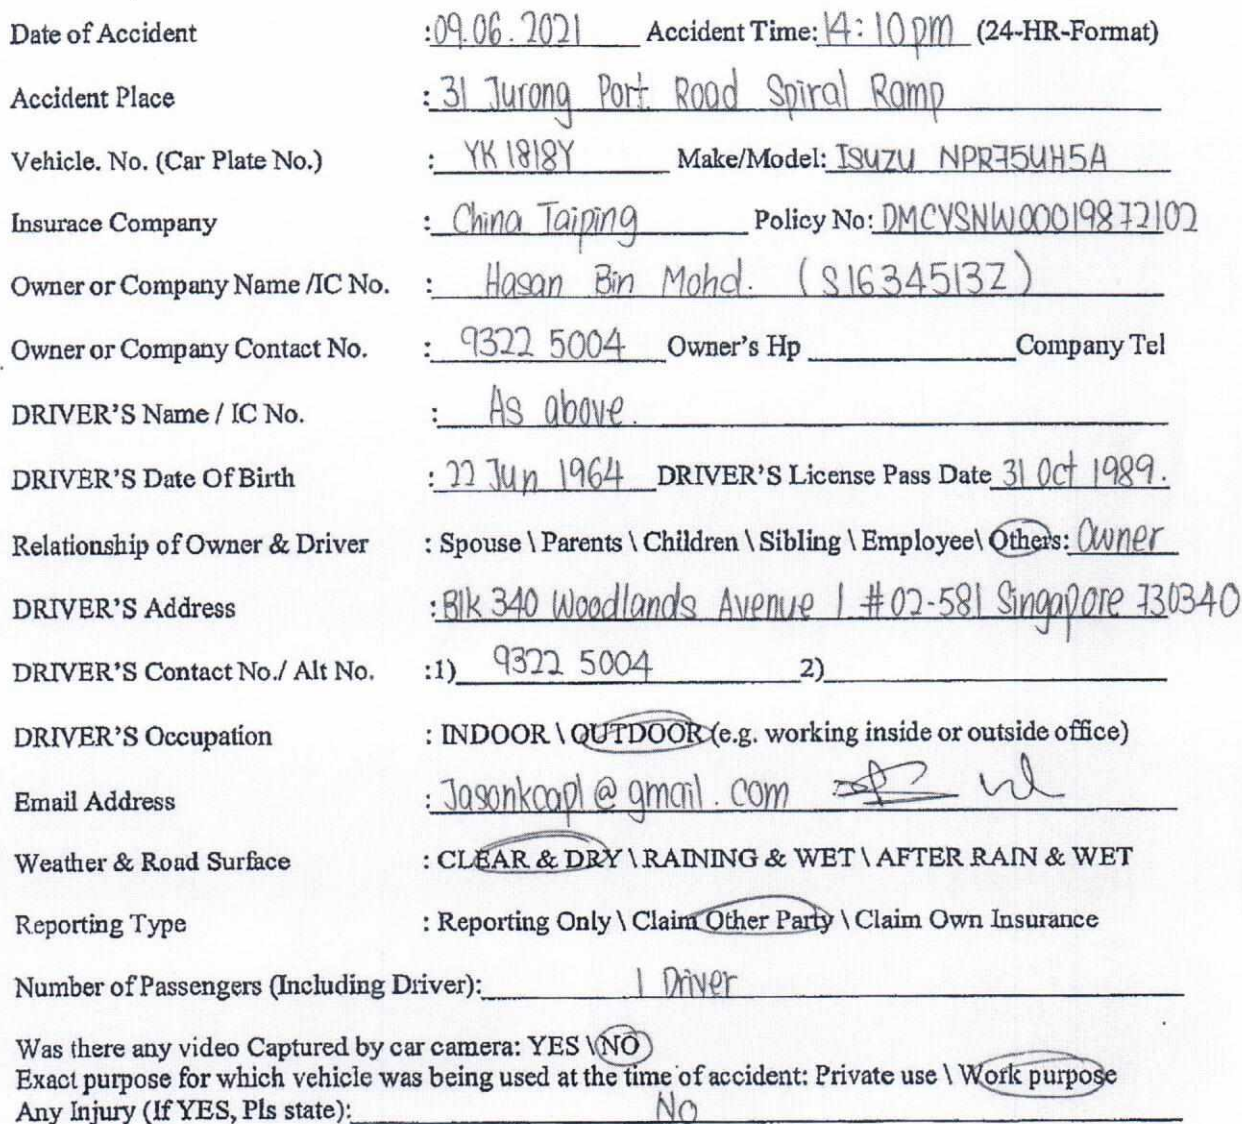 Date of Accident :09.06.2021 Accident Time: 14:10pm (24-HR-Format)
Accident Place : 31 Jurong Port Road Spiral Ramp
Vehicle. No. (Car Plate No.) : YK1818Y Make/Model: ISUZU NPR75UH5A
Insurace Company : China Taiping Policy No: DMCVSNW00019872102
Owner or Company Name /IC No. : Hasan Bin Mohd. (S1634513Z)
Owner or Company Contact No. : 9322 5004 Owner's Hp Company Tel
DRIVER'S Name / IC No. : As above.
DRIVER'S Date Of Birth : 22 Jun 1964 DRIVER'S License Pass Date 31 Oct 1989.
Relationship of Owner & Driver : Spouse \ Parents \ Children \ Sibling \ Employee\ Others: Owner
DRIVER'S Address : Blk 340 Woodlands Avenue 1 #02-581 Singapore 730340
DRIVER'S Contact No./ Alt No. :1) 9322 5004 2)
DRIVER'S Occupation : INDOOR \ OUTDOOR (e.g. working inside or outside office)
Email Address : Jasonkcapl@gmail.com
Weather & Road Surface : CLEAR & DRY \ RAINING & WET \ AFTER RAIN & WET
Reporting Type : Reporting Only \ Claim Other Party \ Claim Own Insurance
Number of Passengers (Including Driver): 1 Driver
Was there any video Captured by car camera: YES \ NO
Exact purpose for which vehicle was being used at the time of accident: Private use \ Work purpose
Any Injury (If YES, Pls state): No